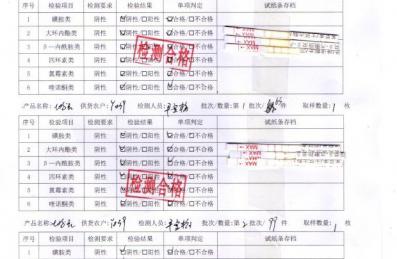 1 磺胺类 阴性 ☑阴性/☐阳性 ☑合格/☐不合格
2 大环内酯类 阴性 ☑阴性/☐阳性 ☑合格/☐不合格
3 β一内酰胺类 阴性 性 合格/☐不合格
4 四环素类 阴性 性 合格/☐不合格
5 氯霉素类 阴性 合格/☐不合格
6 喹诺酮类 阴性 ☑阴性/☐阳性 ☑合格/☐不合格
检测合格
产品名称: 供货农户: 检测人员: 批次/数量:第1批次/ 件 取样数量:1 枚
序号 检验项目 检测要求 检验结果 单项判定 试纸条存档
1 磺胺类 阴性 ☑阴性/☐阳性 ☑合格/☐不合格
2 大环内酯类 阴性 ☑阴性/☐阳性 ☑合格/☐不合格
3 β一内酰胺类 阴性 ☑阴性/☐阳性 ☑合格/☐不合格
4 四环素类 阴性 合格/☐不合格
5 氯霉素类 阴性 合格/☐不合格
6 喹诺酮类 阴性 ☑阴性/☐阳性 ☑合格/☐不合格
检测合格
产品名称: 供货农户: 检测人员: 批次/数量:第2批次/ 99 件 取样数量:1 枚
序号 检验项目 检测要求 检验结果 单项判定 试纸条存档
1 磺胺类 阴性 ☑阴性/☐阳性 ☑合格/☐不合格